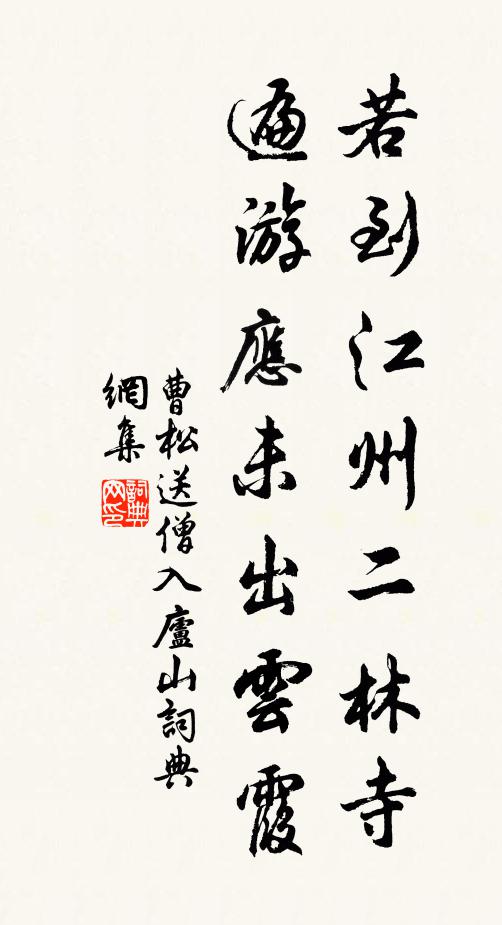 若到江州二林寺
遍游應未出雲霞
曹松送僧入廬山詞典
網集
詞典網印